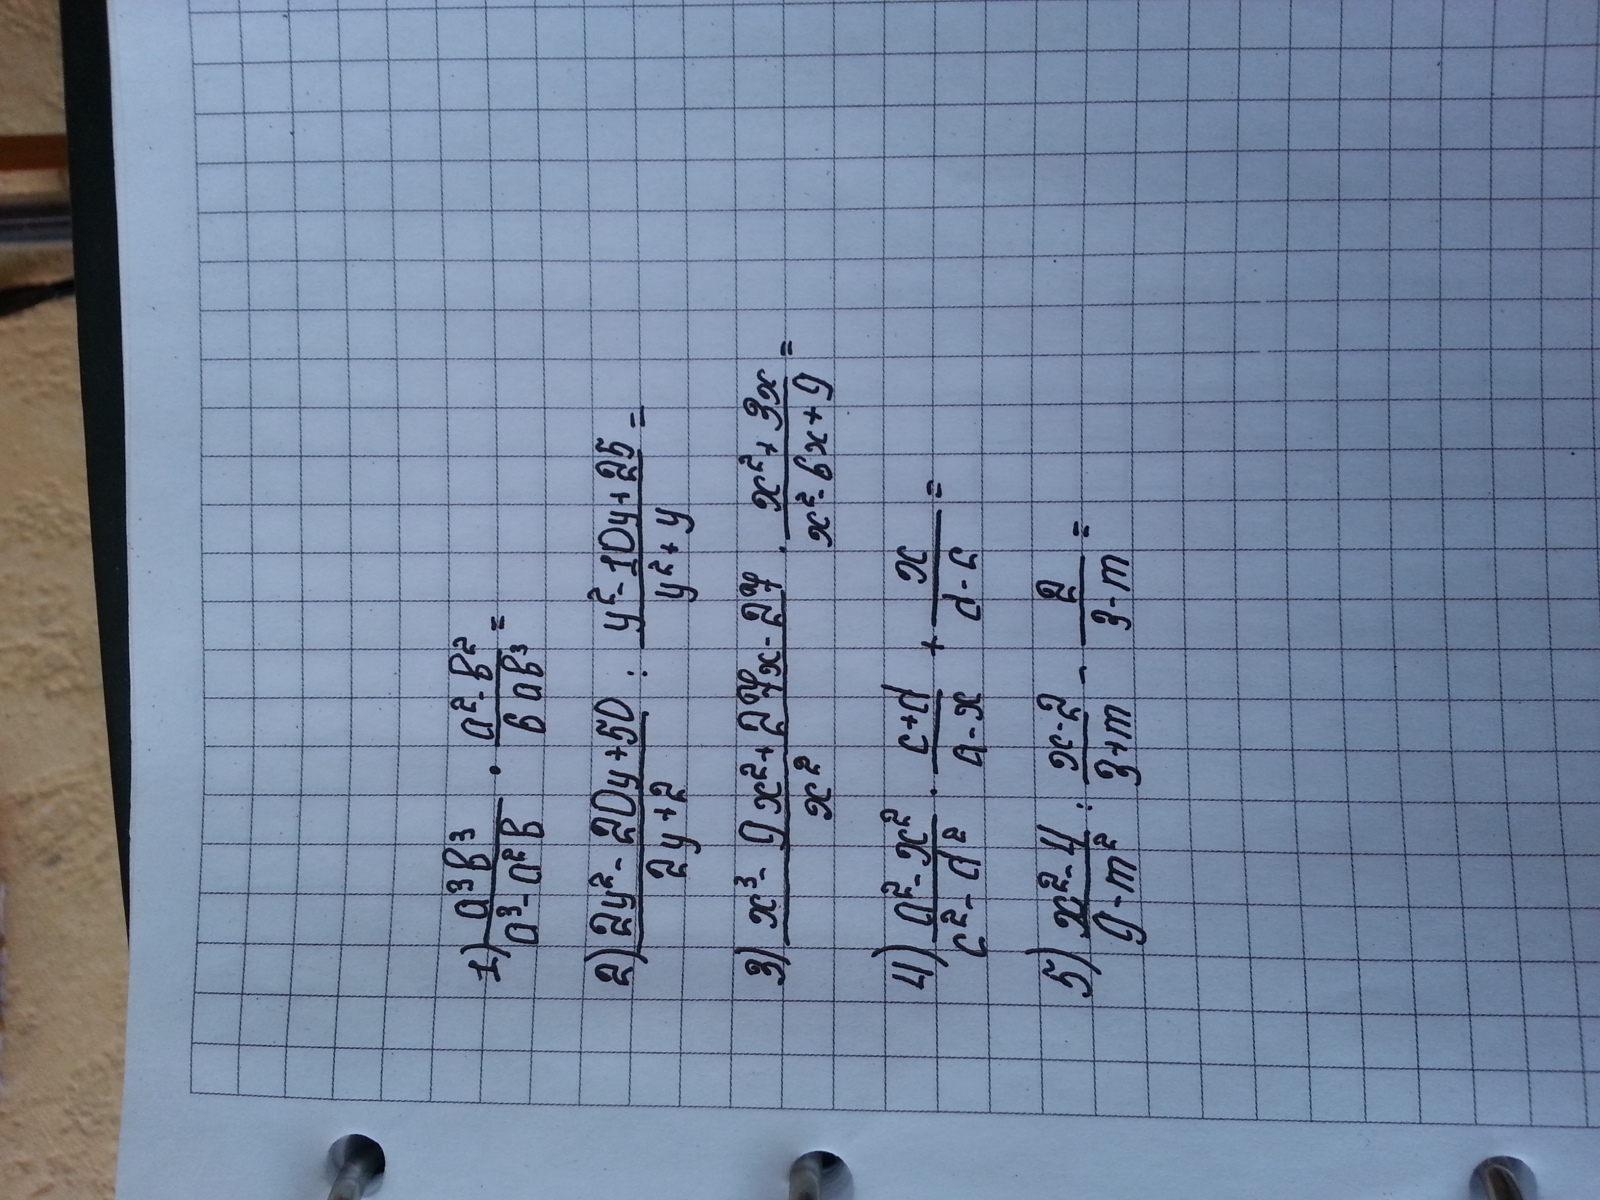 1) a³в³/(a³-a²в) · (a²-в²)/(в aв³) =
2) (2y²-20y+50)/(2y+2) : (y²-10y+25)/(y²+y) =
3) (x³-9x²+27x-27)/x² · (x²+3x)/(x²-6x+9) =
4) (a²-x²)/(c²-d²) · (c+d)/(a-x) + x/(d-c) =
5) (x²-4)/(9-m²) : (x-2)/(3+m) - 2/(3-m) =